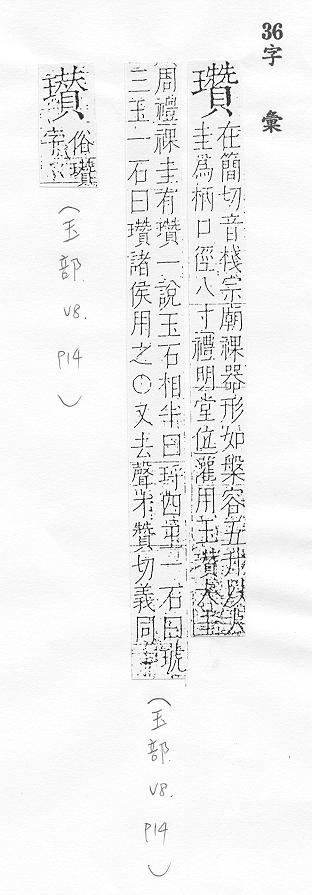 36
字彙
瓚
在簡切音棧宗廟祼器形如槃容五升以大
圭爲柄口徑八寸禮明堂位灌用玉瓚大圭
周禮祼圭有瓚一說玉石相半曰㻏四玉一石曰琥
三玉一石曰瓚諸侯用之○又去聲才贊切義同
(玉部. V8. P14)
瓉
俗瓚
字
(玉部. V8. P14)